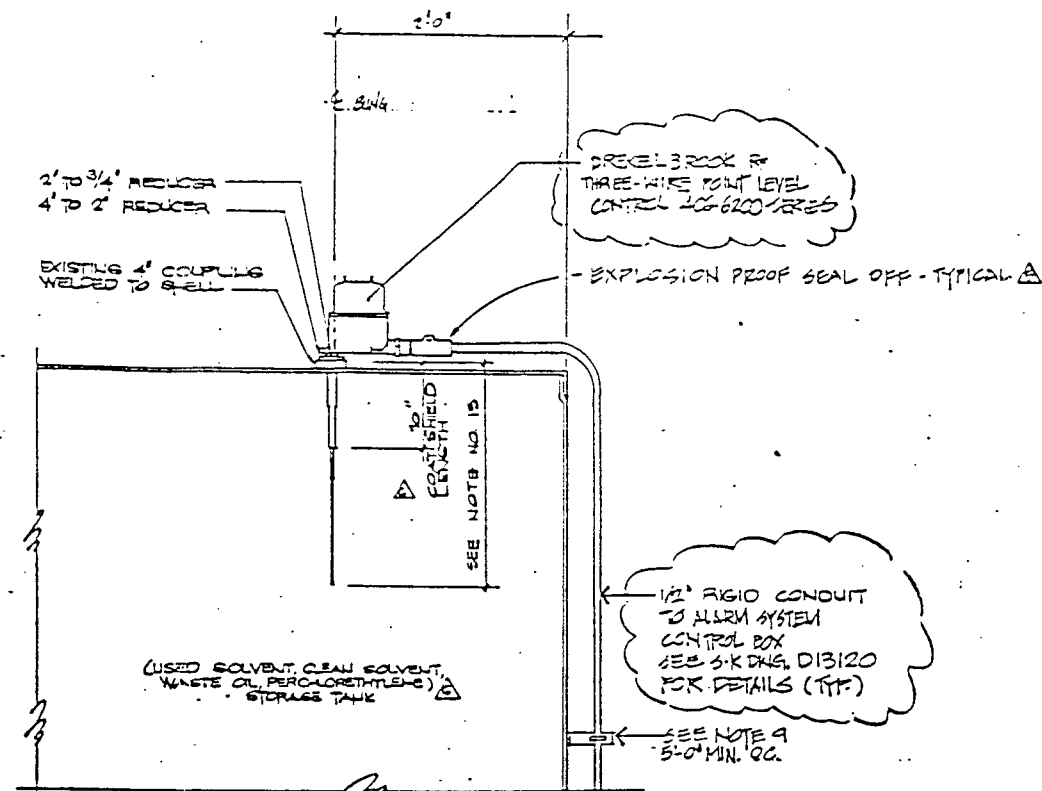 2'-0"
2" TO 3/4" REDUCER
4" TO 2" REDUCER
EXISTING 4" COUPLING
WELDED TO SHELL
DREXELBROOK RF
THREE-WIRE POINT LEVEL
CONTROL 406 6200 SERIES
EXPLOSION PROOF SEAL OFF - TYPICAL
10"
COATSHIELD
LENGTH
SEE NOTE NO. 15
1/2" RIGID CONDUIT
TO ALARM SYSTEM
CONTROL BOX
SEE S-K DWG. D13120
FOR DETAILS (TYP.)
(USED SOLVENT, CLEAN SOLVENT,
WASTE OIL, PERCHLORETHYLENE)
STORAGE TANK
SEE NOTE 9
5'-0" MIN. OC.